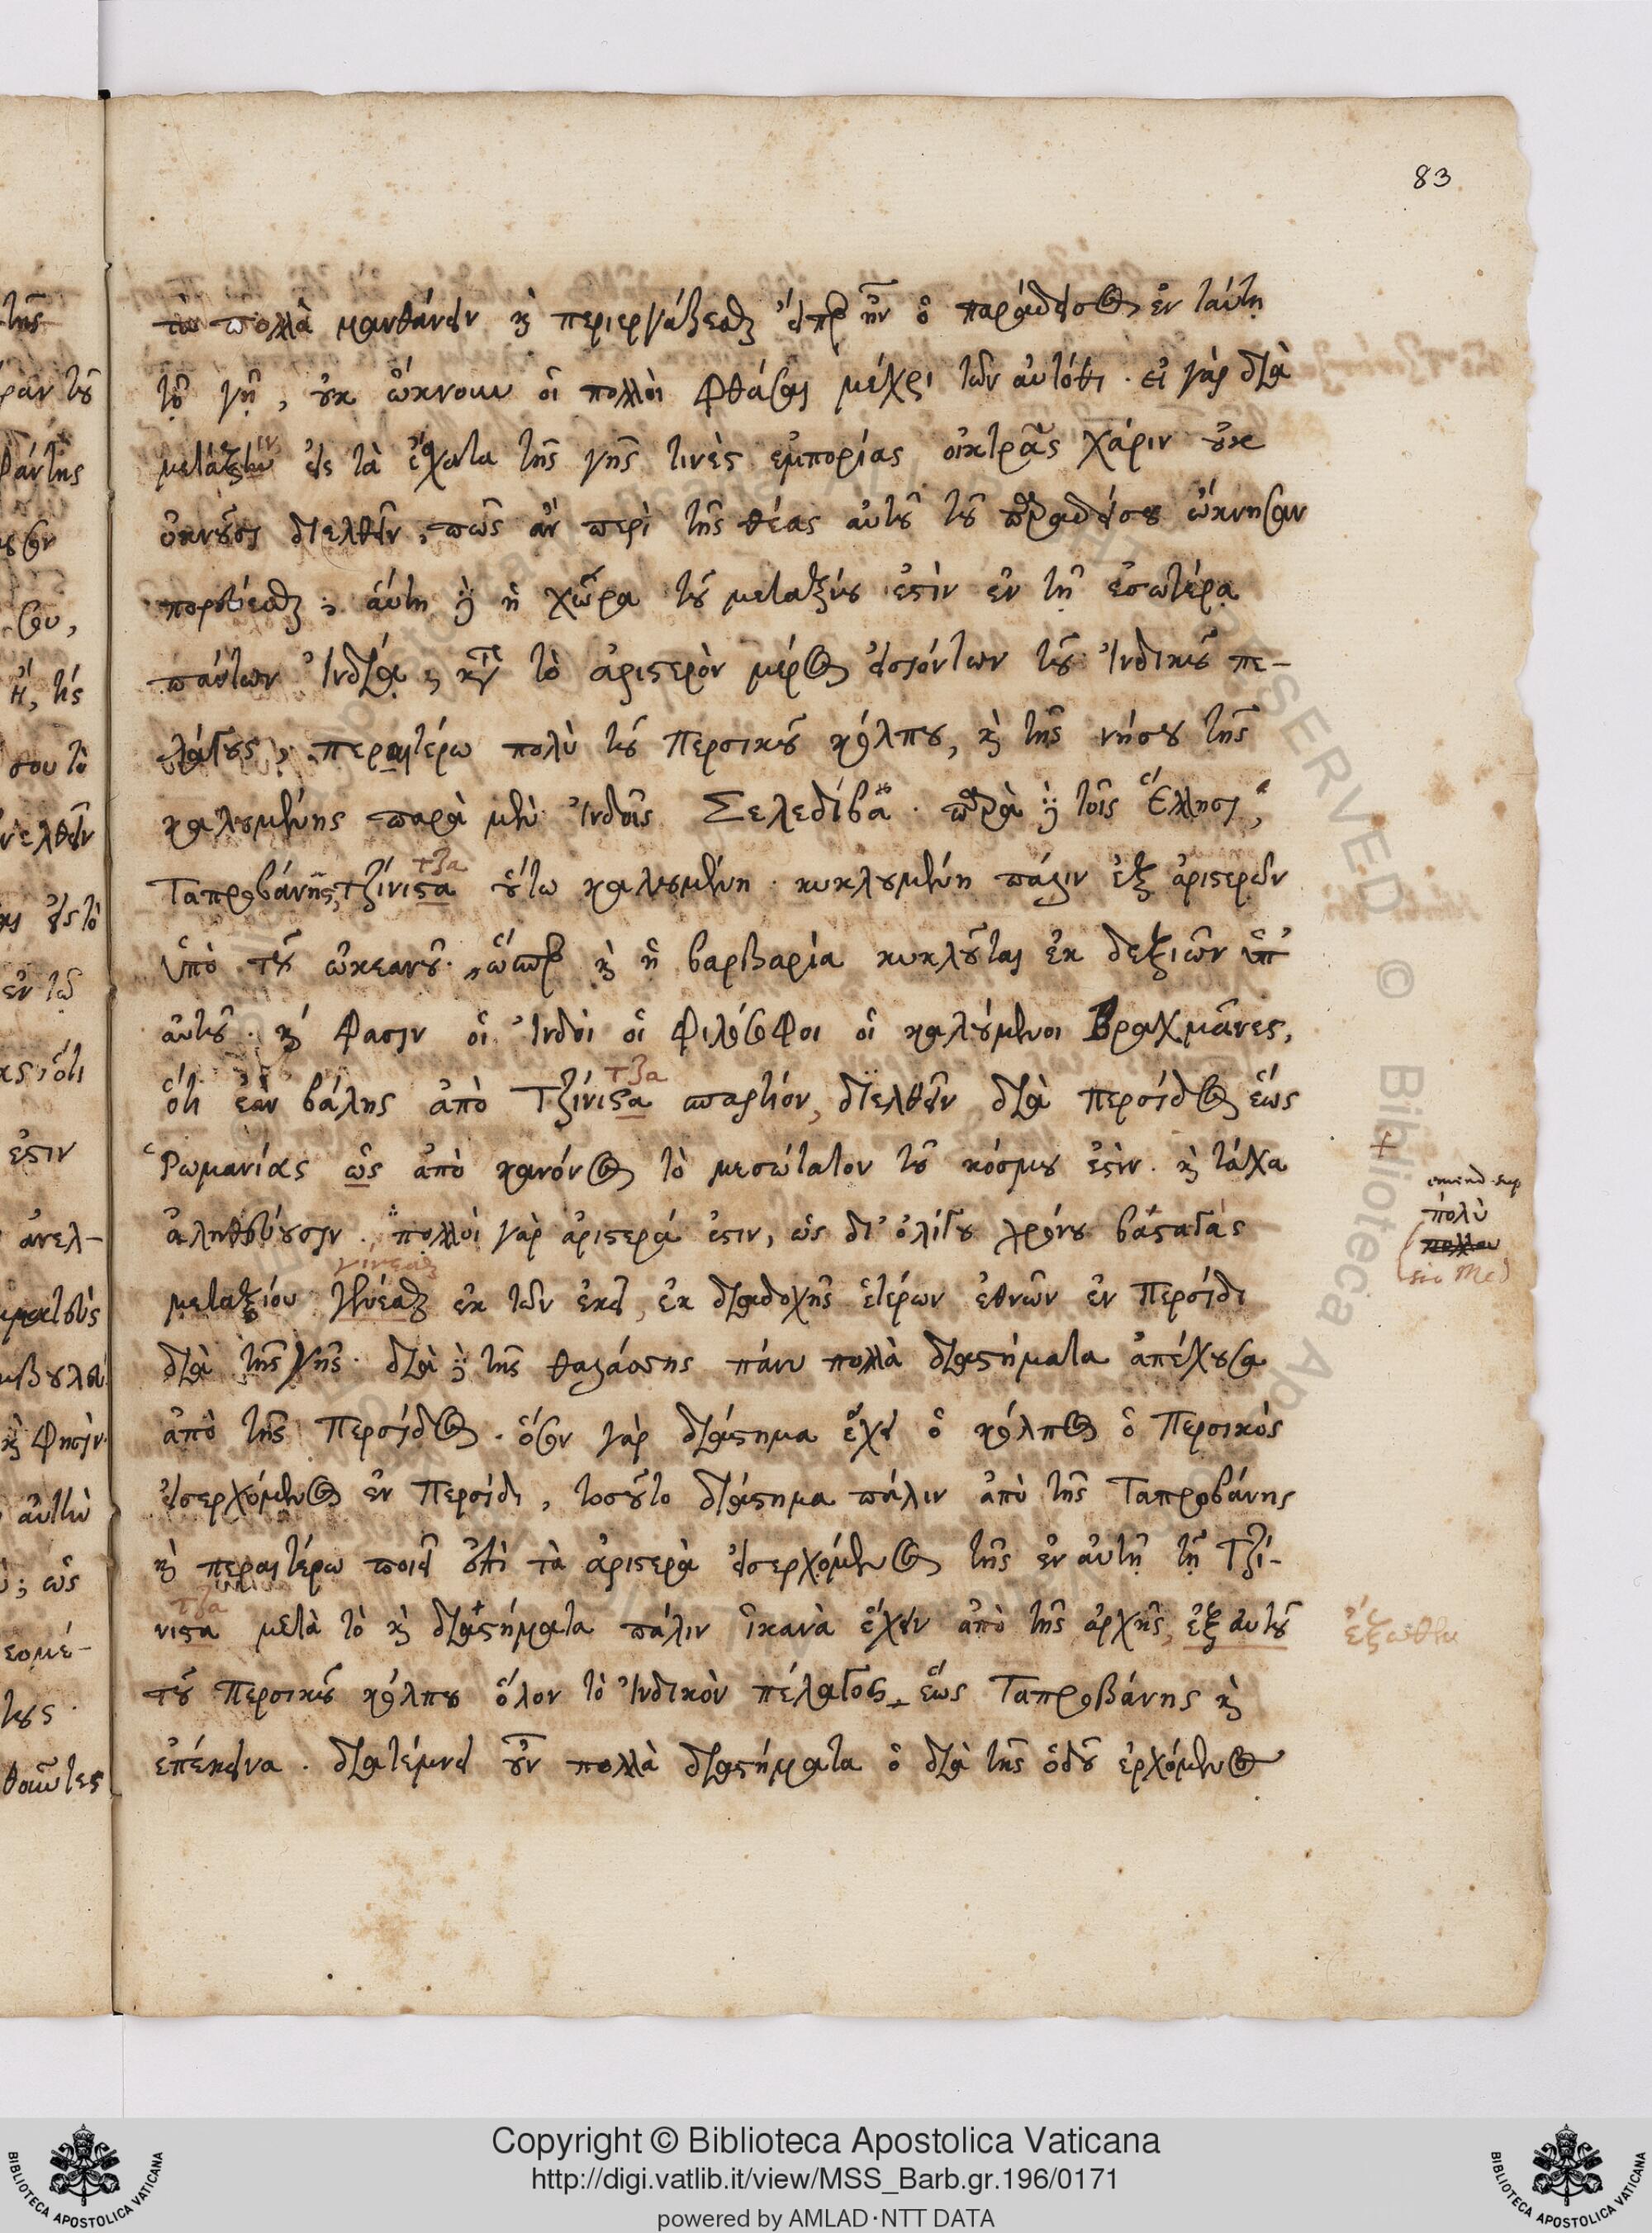 83
τὰ πολλὰ μανθάνειν κὶ περιεργάζεσθαι εἴπερ ἦν ὁ παράδεισος ἐν ταύτῃ
τῇ γῇ, οὐκ ὤκνουν οἱ πολλοὶ φθάσαι μέχρι τῶν αὐτόθι. εἰ γὰρ διὰ
μετάξιν εἰς τὰ ἔσχατα τῆς γῆς τινὲς ἐμπορίας οἰκτρᾶς χάριν οὐκ
ὀκνοῦσι διελθεῖν, πῶς ἂν περὶ τῆς θέας αὐτοῦ τοῦ παραδείσου ὤκνησαν
πορεύεσθαι; αὕτη δὲ ἡ χώρα τοῦ μεταξίου ἐστὶν ἐν τῇ ἐσωτέρᾳ
πάντων Ἰνδίᾳ, κατὰ τὸ ἀριστερὸν μέρος εἰσιόντων τοῦ Ἰνδικοῦ πε-
λάγους, περαιτέρω πολὺ τοῦ Περσικοῦ κόλπου, κὶ τῆς νήσου τῆς
καλουμένης παρὰ μὲν Ἰνδοῖς Σελεδίβα. παρὰ δὲ τοῖς Ἕλλησι,
τζα
Ταπροβάνης, Τζίνιστα οὕτω καλουμένη. κυκλουμένη πάλιν ἐξ ἀριστερῶν
ὑπὸ τοῦ ὠκεανοῦ. ὥσπερ κὶ ἡ βαρβαρία κυκλοῦται ἐκ δεξιῶν ὑπ'
αὐτοῦ. κὶ φασὶν οἱ Ἰνδοὶ οἱ φιλόσοφοι οἱ καλούμενοι Βραχμᾶνες,
τζα
ὅτι ἐὰν βάλῃς ἀπὸ Τζίνιστα σπαρτίον, διελθεῖν διὰ Περσίδος ἕως
Ῥωμανίας ὡς ἀπὸ κανόνος τὸ μεσώτατον τοῦ κόσμου ἐστὶν. κὶ τάχα
emend. sup
πολὺ
sic Med
ἀληθεύουσιν. πολλοὶ γὰρ ἀριστερά ἐστιν, ὡς δι' ὀλίγου χρόνου βασταγὰς
γίνεσθαι
μεταξίου γενέσθαι ἐκ τῶν ἐκεῖ, ἐκ διαδοχῆς ἑτέρων ἐθνῶν ἐν Περσίδι
διὰ τῆς γῆς. διὰ δὲ τῆς θαλάσσης πάνυ πολλὰ διαστήματα ἀπέχουσα
ἀπὸ τῆς Περσίδος. ὅσον γὰρ διάστημα ἔχει ὁ κόλπος ὁ Περσικὸς
εἰσερχόμενος ἐν Περσίδι, τοσοῦτο διάστημα πάλιν ἀπὸ τῆς Ταπροβάνης
κὶ περαιτέρω ποιεῖ ἐπὶ τὰ ἀριστερὰ εἰσερχόμενος τῆς ἐν αὐτῇ τῇ Τζί-
τζα
νιστα μετὰ τὸ κὶ διαστήματα πάλιν ἱκανὰ ἔχειν ἀπὸ τῆς ἀρχῆς, ἐξ αὐτοῦ
ἔξωθεν
τοῦ Περσικοῦ κόλπου ὅλον τὸ Ἰνδικὸν πέλαγος ἕως Ταπροβάνης κὶ
ἐπέκεινα. διατέμνει οὖν πολλὰ διαστήματα ὁ διὰ τῆς ὁδοῦ ἐρχόμενος
Copyright © Biblioteca Apostolica Vaticana
http://digi.vatlib.it/view/MSS_Barb.gr.196/0171
powered by AMLAD·NTT DATA
BIBLIOTECA APOSTOLICA VATICANA
BIBLIOTECA APOSTOLICA VATICANA